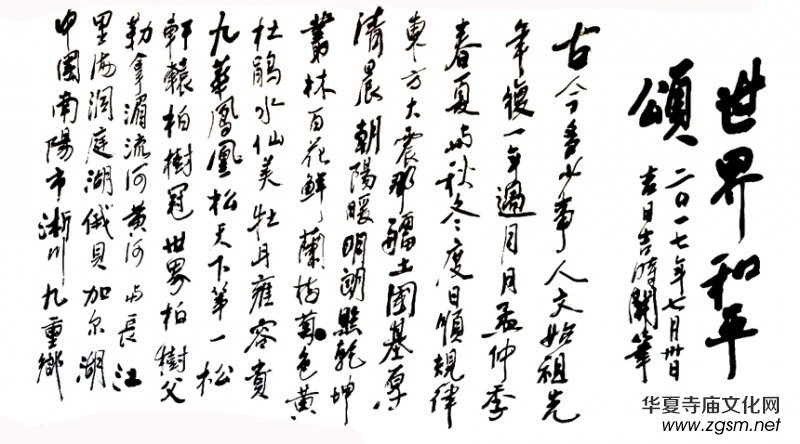 世界和平
頌
二〇一七年七月卅日
吉日吉時開筆
古今多少事人文始祖先
年復一年過月月孟仲季
春夏與秋冬度日順規律
東方大震那疆土國基厚
清晨朝陽暖明朗照乾坤
叢林百花鮮蘭梅菊色黃
杜鵑水仙美牡丹雍容貴
九華鳳凰松天下第一松
軒轅柏樹冠世界柏樹父
勒拿湄流河黃河與長江
里海洞庭湖俄貝加尔湖
中国南陽市淅川九重鄉
华夏寺庙文化网
www.zgsm.net